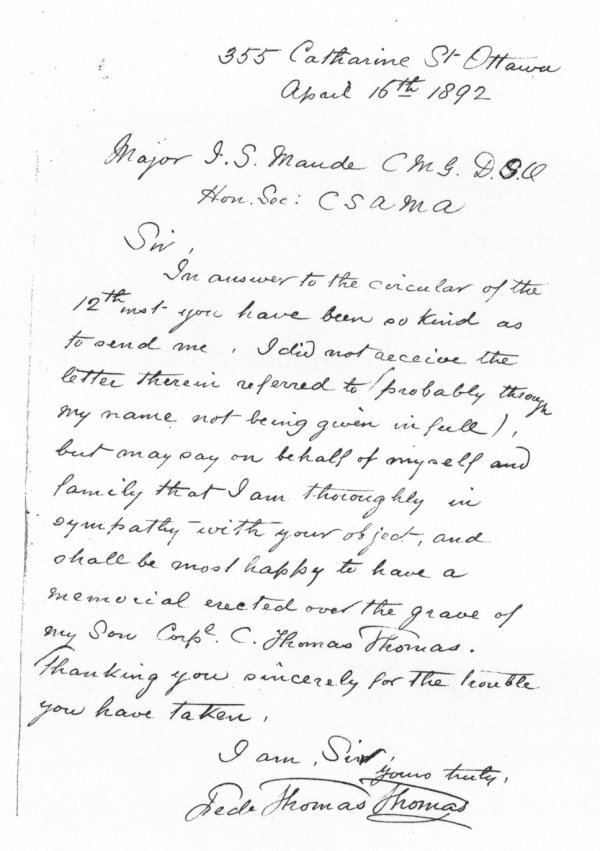 355 Catharine St Ottawa
April 16th 1892
Major F. S. Maude C M G. D.S.O
Hon. Sec: C S A M A
Sir,
In answer to the circular of the
12th inst you have been so kind as
to send me, I did not receive the
letter therein referred to (probably through
my name not being given in full),
but may say on behalf of myself and
family that I am thoroughly in
sympathy with your object, and
shall be most happy to have a
memorial erected over the grave of
my Son Corpl. C. Thomas Thomas.
Thanking you sincerely for the trouble
you have taken,
I am, Sir
yours truly,
Fredk Thomas Thomas